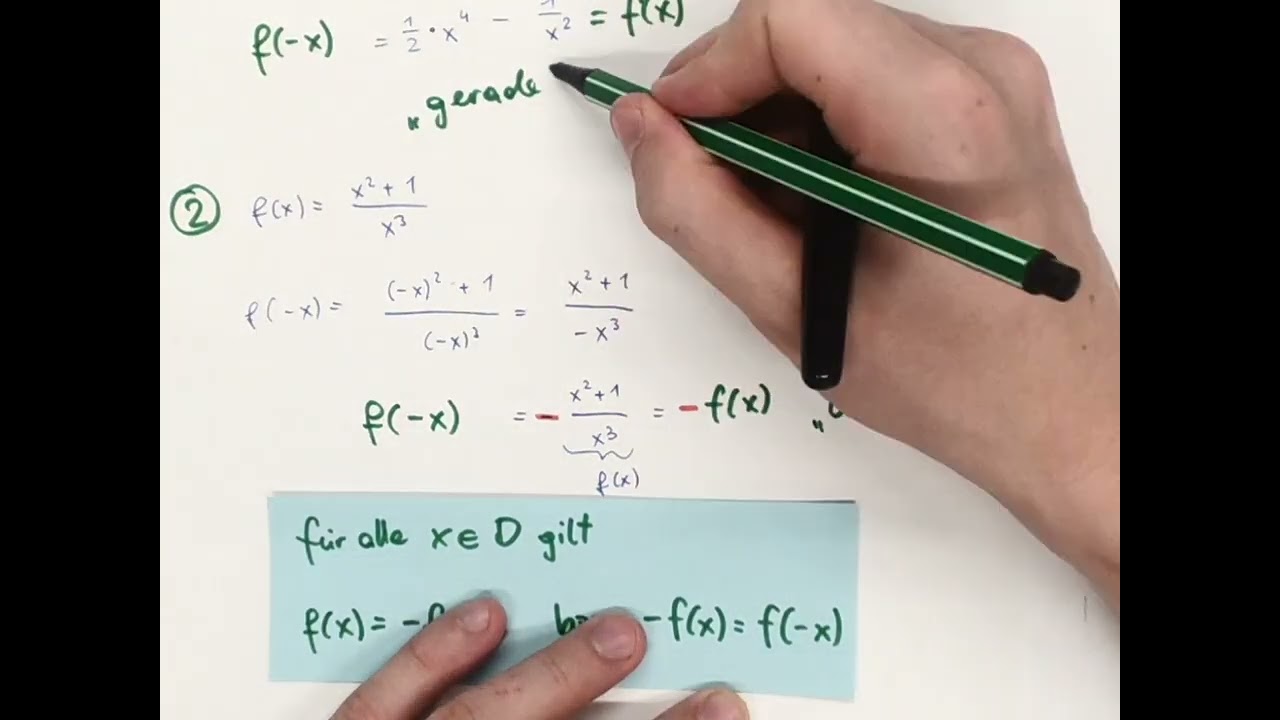 f(-x) = 1/2 · x⁴ - 1/x² = f(x)
„gerade
② f(x) = (x² + 1)/x³
f(-x) = ((-x)² + 1)/(-x)³ = (x² + 1)/(-x³)
f(-x) = - (x² + 1)/x³ = - f(x) „
f(x)
für alle x ∈ D gilt
f(x) = - - f(x) = f(-x)